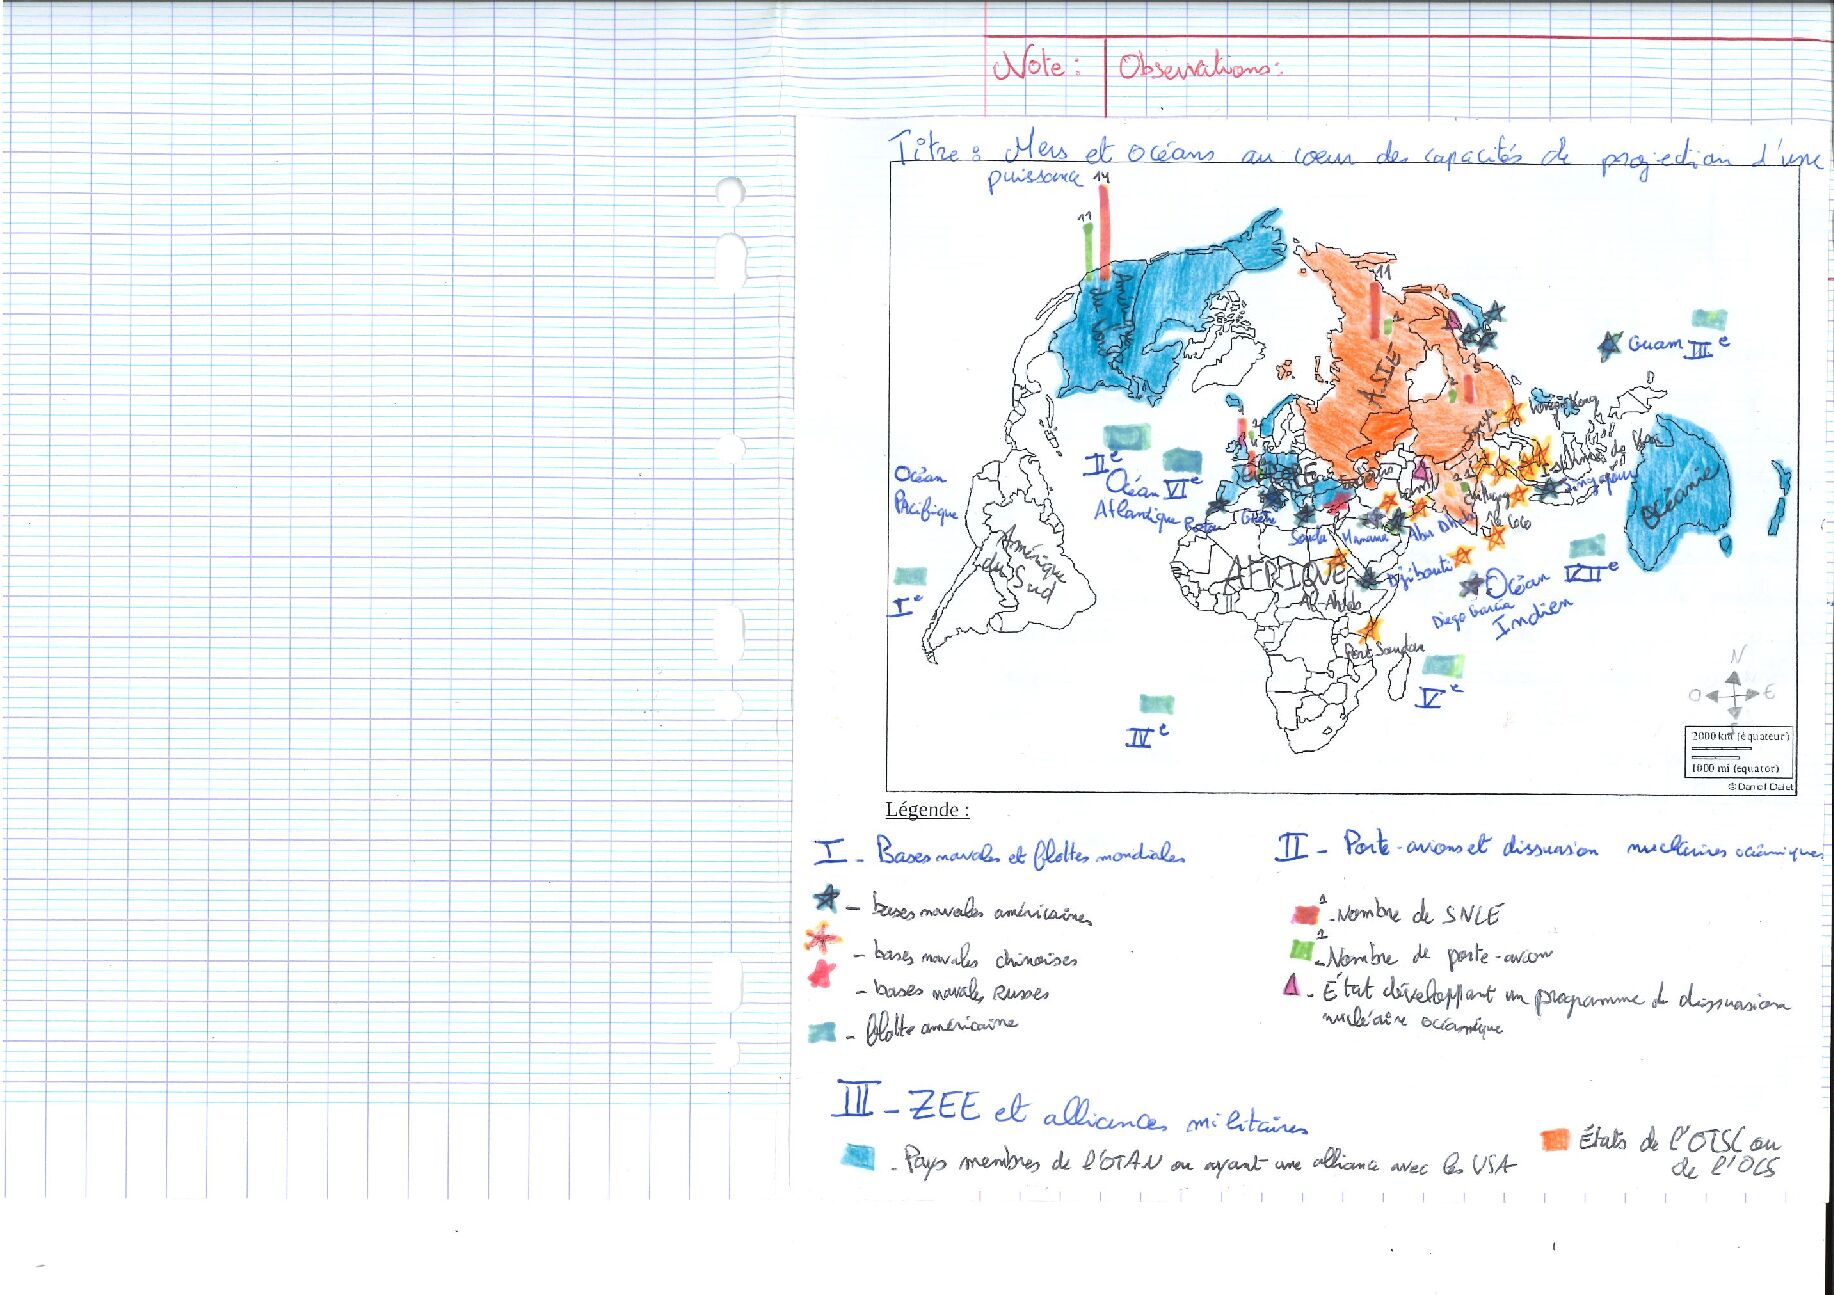 Note : Observations :
Titre : Mers et océans au coeur des capacités de projection d'une
puissance
14
11
11
Amérique du Nord
ASIE
Guam III e
Hong Kong
II e
Océan
Atlantique
VI e
Océan
Pacifique
EUROPE
Singapour
Océanie
Rota
Grèce
Souda
Manama
Abu Dhabi
île Coco
Amérique
du Sud
AFRIQUE
Djibouti
Océan
Indien
VII e
Diego Garcia
I e
Port Soudan
V e
IV e
N
O E
S
2000 km (équateur)
1000 mi (equator)
© Daniel Dalet
Légende :
I - Bases navales et flottes mondiales
- bases navales américaines
- bases navales chinoises
- bases navales Russes
- flotte américaine
II - Porte-avions et dissuasion nucléaires océaniques
1 - Nombre de SNLE
2 - Nombre de porte-avion
- État développant un programme de dissuasion
nucléaire océanique
III - ZEE et alliances militaires
- Pays membres de l'OTAN ou ayant une alliance avec les USA
États de l'OTSC ou
de l'OCS